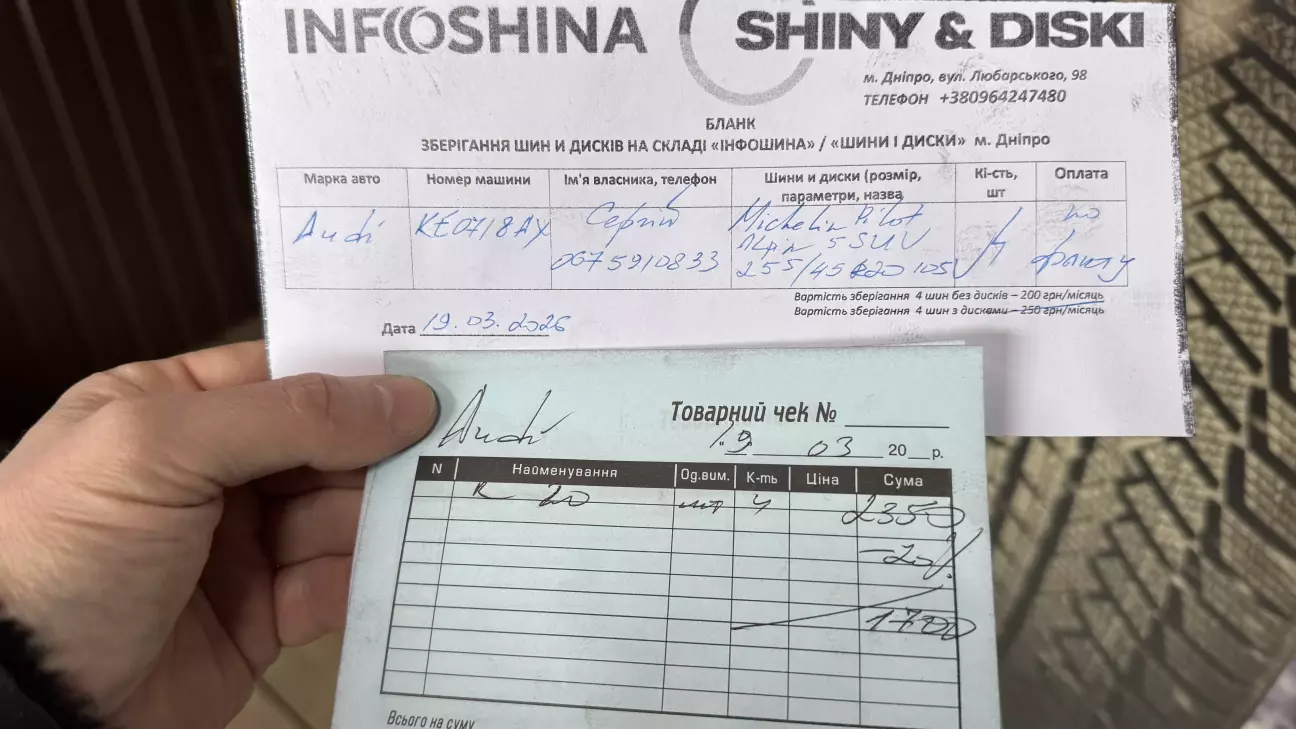 INFOSHINA
SHINY & DISKI
м. Дніпро, вул. Любарського, 98
ТЕЛЕФОН +380964247480
БЛАНК
ЗБЕРІГАННЯ ШИН И ДИСКІВ НА СКЛАДІ «ІНФОШИНА» / «ШИНИ І ДИСКИ» м. Дніпро
Марка авто Номер машини Ім'я власника, телефон Шини и диски (розмір, параметри, назва Кі-сть, шт Оплата
Audi KE0718AX Сергій 0675910833 Michelin Pilot Alpin 5 SUV 255/45 R20 105V 4 по факту
Вартість зберігання 4 шин без дисків – 200 грн/місяць
Вартість зберігання 4 шин з дисками – 250 грн/місяць
Дата 19.03.2026
Audi
Товарний чек №
19 03 20 р.
N Наоменування Од.вим. К-ть Ціна Сума
R 20 шт 4 2350
-20%
1700
Всього на суму